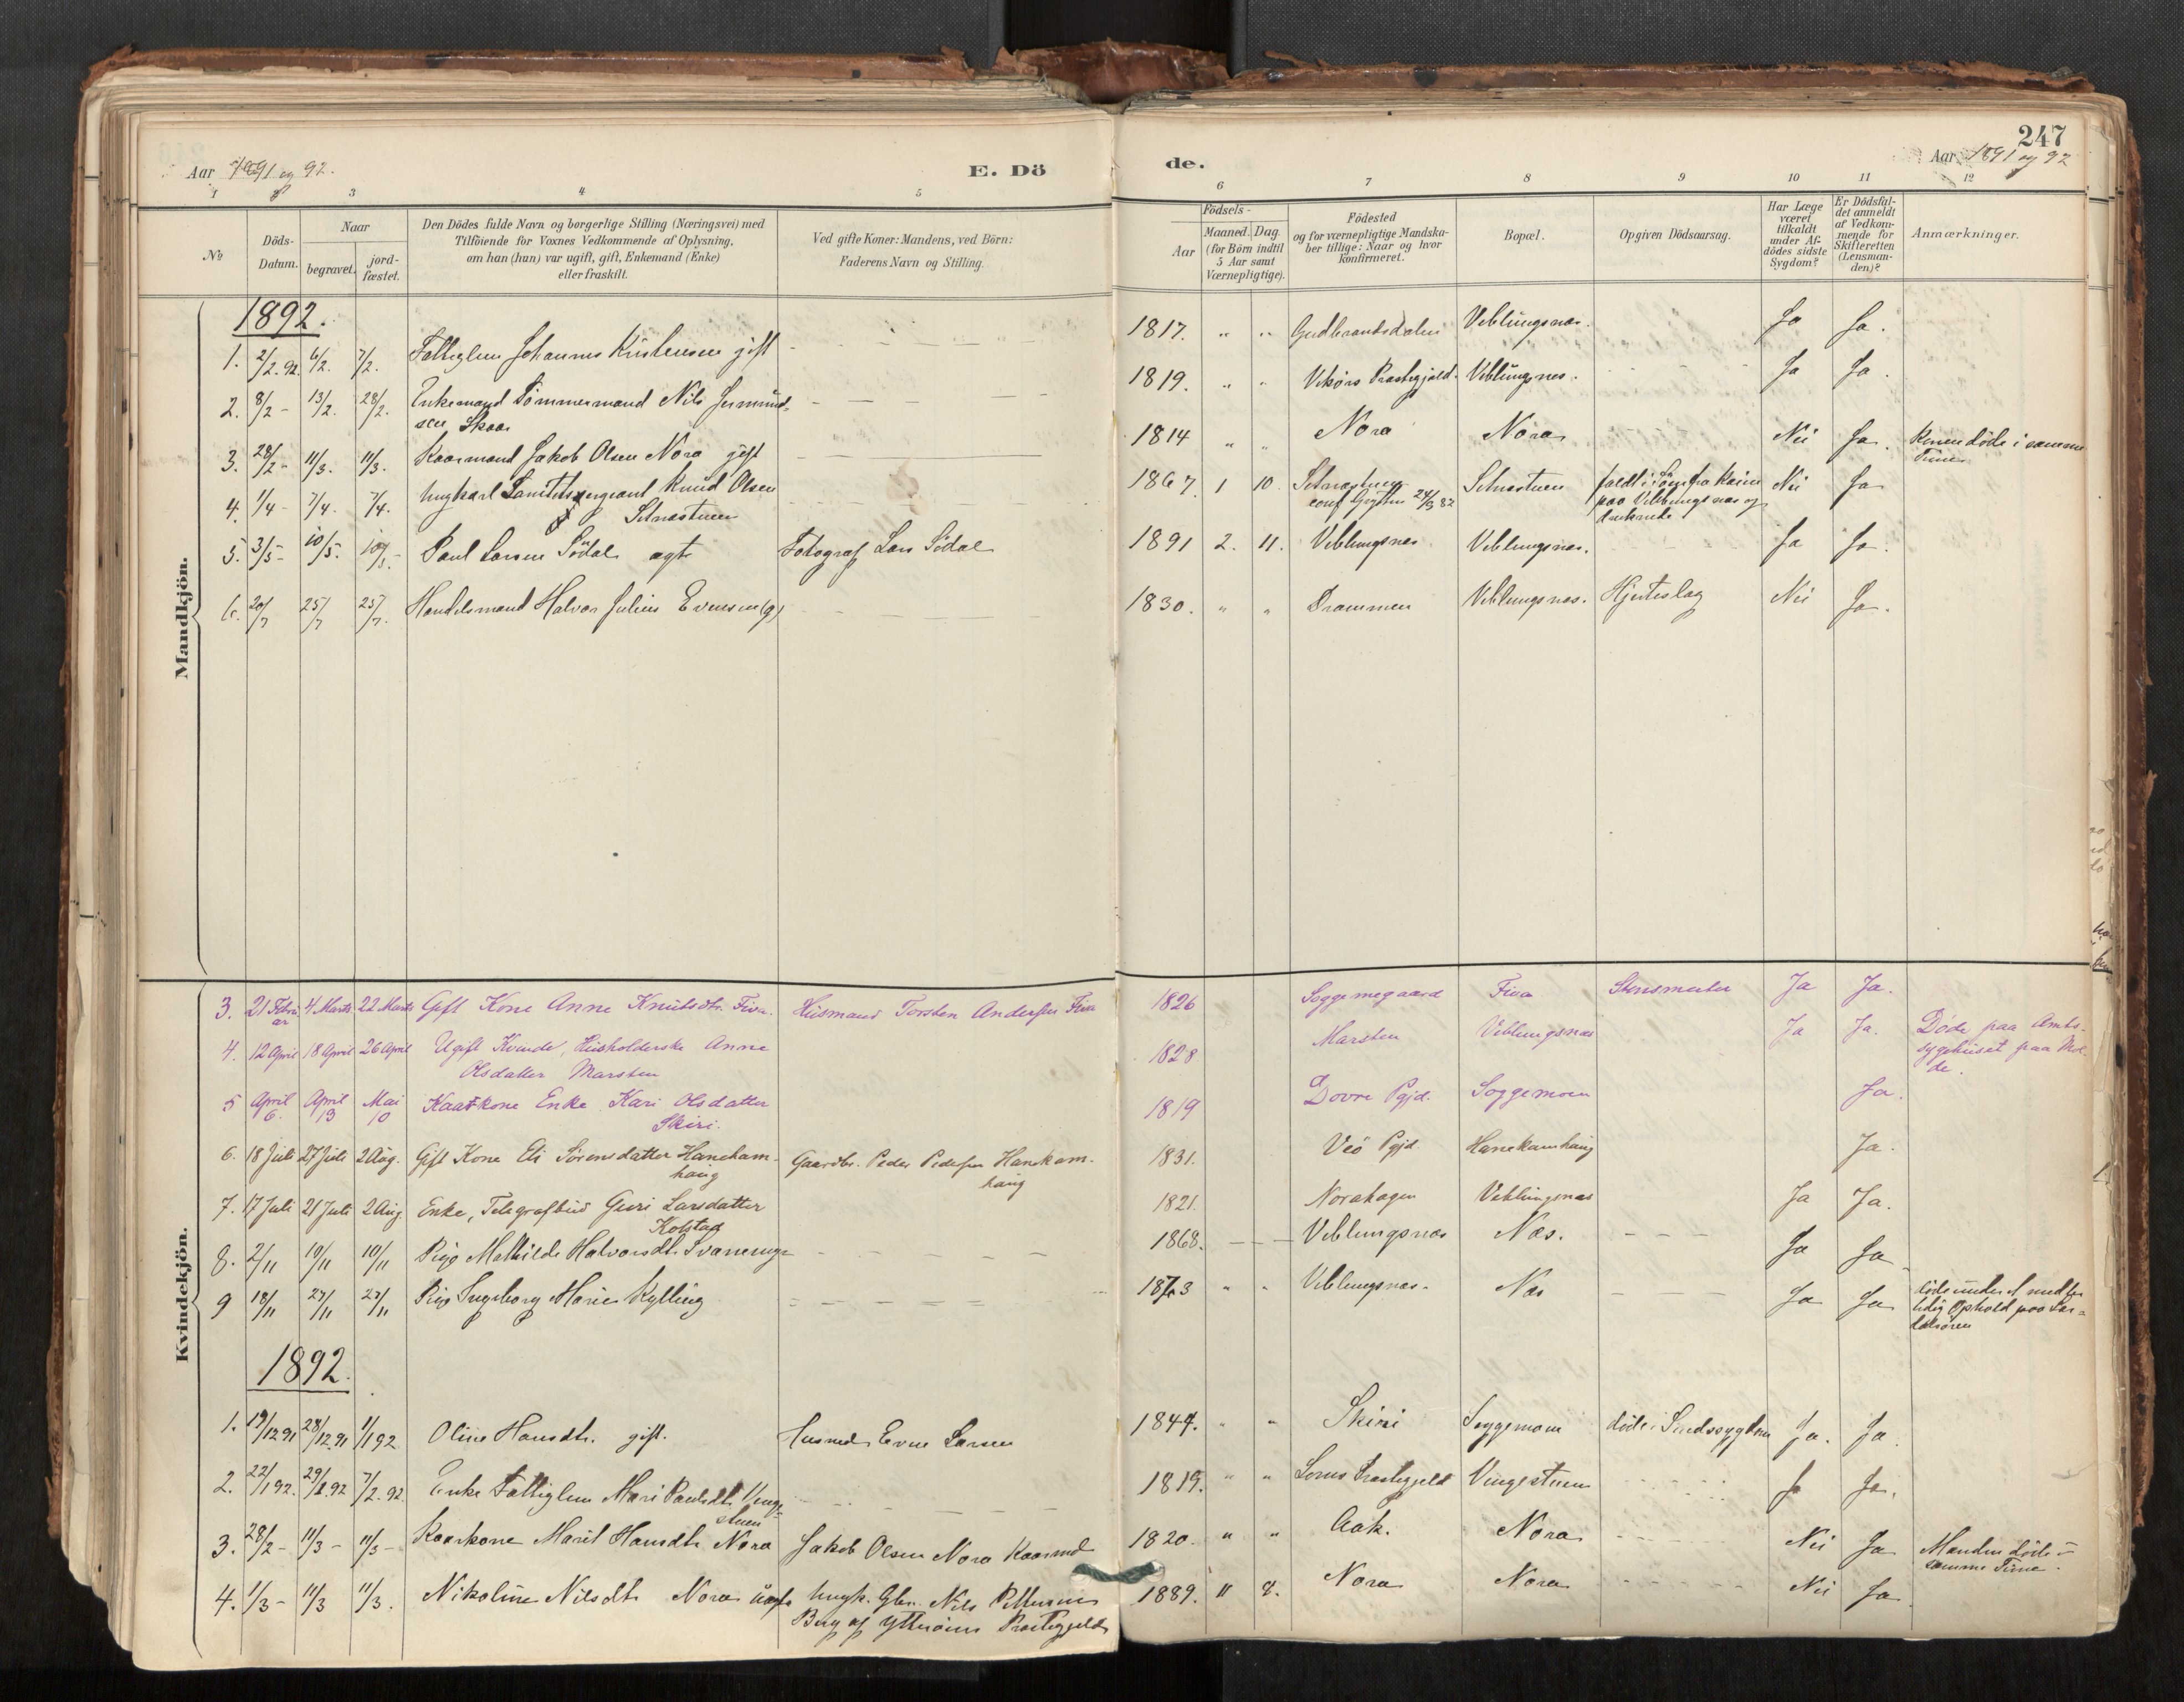 247
Aar 1891 og 92.
E. Dö
de.
Aar 1891 og 92
1 3 4 5 6 7 8 9 10 11 12
№
Döds-
Datum.
Naar
begravet.
jord-
fæstet.
Den Dödes fulde Navn og borgerlige Stilling (Næringsvei) med
Tilföiende for Voxnes Vedkommende af Oplysning,
om han (hun) var ugift, gift, Enkemand (Enke)
eller fraskilt.
Ved gifte Koner: Mandens, ved Börn:
Faderens Navn og Stilling.
Födsels-
Aar
Maaned. Dag
(for Börn indtil
5 Aar samt
Værnepligtige).
Födested
og for værnepligtige Mandska-
ber tillige: Naar og hvor
konfirmeret.
Bopæl.
Opgiven Dödsaarsag.
Har Læge
været
tilkaldt
under Af-
dödes sidste
Sygdom?
Er Dödsfal-
det anmeldt
af Vedkom-
mende for
Skifteretten
(Lensman-
den)?
Anmærkninger.
Mandkjön.
1892.
1. 2/2.92. 6/2. 7/2. Fattiglem Johannes Kristensen gift 1817. " " Gudbrandsdalen Veblungsnæs. Ja Ja.
2. 8/2 - 13/2. 28/2. Enkemand Tömmermand Nils Jermund-
sen Skaar 1819. " " Vikörs Præstegjeld. Veblungsnes. Ja Ja.
3. 28/2 - 11/3. 11/3. Kaarmand Jakob Olsen Nora gift 1814 " " Nora Nora Nei Ja. Konen döde i samme
Time
4. 1/4 - 7/4. 7/4. Ungkarl Sanitetssergeant Knud Olsen
Setnæstuen 1867. 1 10. Setnæstuen
conf Grytten 24/9 82 Setnæstuen faldt i Söen fra Kaien
paa Veblungsnæs og
druknede Nei Ja
5. 3/5 - 10/5. 10/5. Paul Larsen Södal ægte Fotograf Lars Södal 1891 2. 11. Veblungsnæs Veblungsnæs. Ja Ja.
6. 20/7 25/7 25/7. Handelsmand Halvor Julius Evensen (g) 1830. " " Drammen Veblungsnæs. Hjerteslag Nei Ja.
Kvindekjön.
3. 21 Febru
ar 4 Marts 22 Marts Gift Kone Anne Knutsdtr. Fiva. Husmand Torsten Andersen Fiva 1826 Soggemegaard Fiva Ja Ja.
4. 12 April 18 April 26 April Ugift Kvinde, Husholderske Anne
Olsdatter Marsten 1828 Marsten Veblungsnæs Ja Ja. Døde paa Amts-
sygehuset paa Mol-
de.
5 April
6. April
13 Mai
10 Kaarkone Enke Kari Olsdatter
Skiri. 1819 Dovre Pgjd. Soggemoen Ja.
6. 18 Juli 27 Juli 2 Aug. Gift Kone Eli Sörensdatter Hanekam-
haug Gaardbr. Peder Pedersen Hanekam-
haug 1831. Veö Pgjd. Hanekamhaug Ja.
7. 17 Juli 21 Juli 2 Aug. Enke, Telegrafbud Guri Larsdatter
Kolstad 1821. Norahagen Veblungsnæs Ja Ja.
8. 2/11 10/11 10/11 Pige Mathilde Halvorsdtr. 1868. Veblungsnæs Næs. Ja Ja
9 18/11 27/11 27/11 Pige Ingeborg Marie Kylling 1873 " " Veblungsnæs. Næs Ja Ja döde under et midler
tidig Ophold paa
1892.
1. 19/12 91 28/12 91 1/1 92 Oline Hansdtr. gift. Husmd. Even Larsen 1844. " " Skiri Soggemoen döde i Sindssygdom Ja. Ja.
2. 22/1 92. 29/1 92 7/2. 92. Enke Fattiglem Mari Paulsdtr. Venge-
stuen 1819. " " Loms Præstegjeld Vengestuen Ja Ja.
3. 28/2 - 11/3 - 11/3 - Kaarkone Marit Hansdtr. Nora Jakob Olsen Nora Kaarmd 1820. " " Aak. Nora Nei Ja Manden döde i
samme Time.
4. 1/3 - 11/3 11/3. Nikoline Nilsdtr. Nora uægte Ungk. Nils Pettersen
Berg af Ytteröens Præstegjeld 1889. 11 8. Nora Nora Nei Ja.